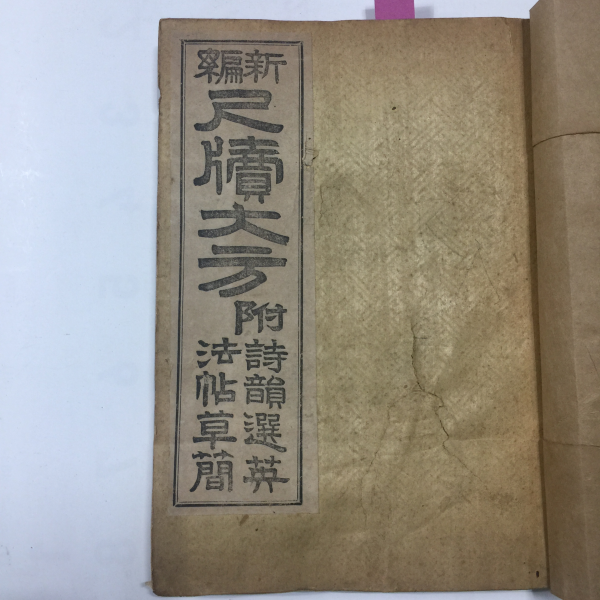 新編
尺牘大方
附
詩韻選英
法帖草簡